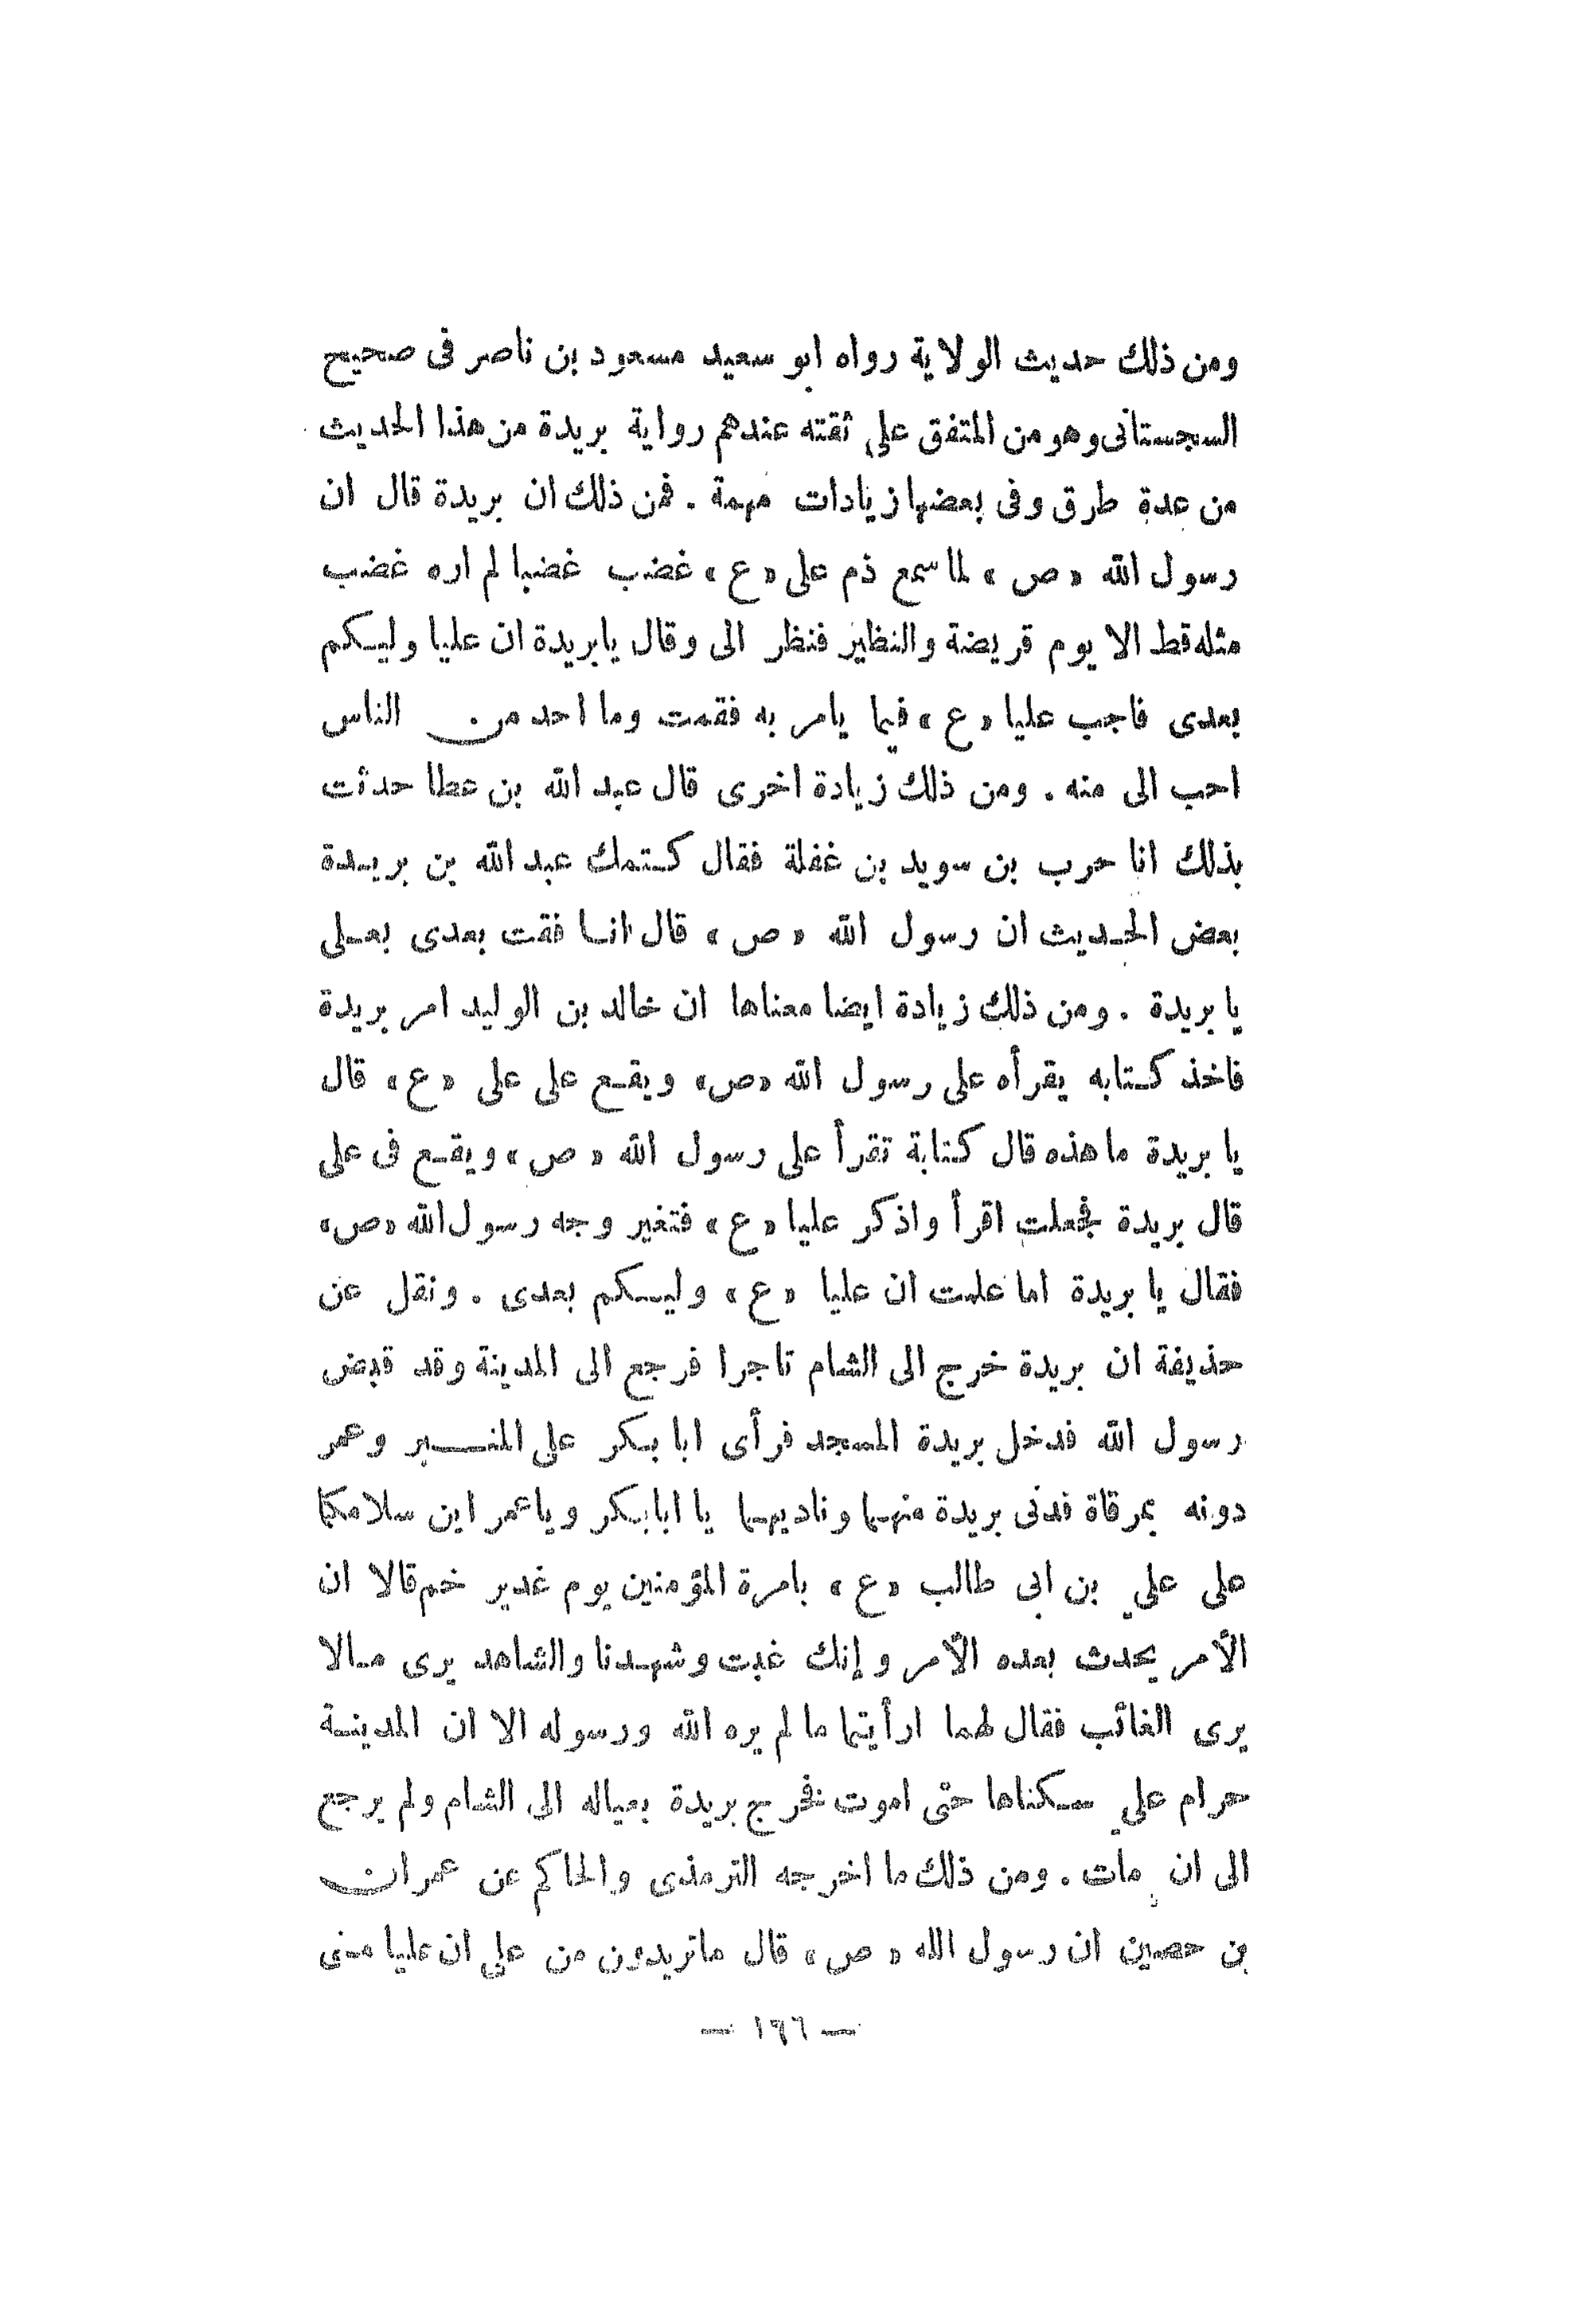 ومن ذلك حديث الولاية رواه ابو سعيد مسعود بن ناصر فى صحيح
السجستانى وهو من المتفق على ثقته عندهم رواية بريدة من هذا الحديث
من عدة طرق وفى بعضها زيادات مهمة . فمن ذلك ان بريدة قال ان
رسول الله « ص » لما سمع ذم على « ع » غضب غضبا لم اره غضب
مثله قط الا يوم قريضة والنظير فنظر الى وقال يا بريدة ان عليا وليكم
بعدى فاجب عليا « ع » فيما يامر به فقمت وما احد من الناس
احب الى منه . ومن ذلك زيادة اخرى قال عبد الله بن عطا حدثت
بذلك انا حرب بن سويد بن غفلة فقال كتمك عبد الله بن بريدة
بعض الحديث ان رسول الله « ص » قال انا فقت بعدى بعلى
يا بريدة . ومن ذلك زيادة ايضا معناها ان خالد بن الوليد امر بريدة
فاخذ كتابه يقرأه على رسول الله « ص » ويقع على على « ع » قال
يا بريدة ما هذه قال كتابة تقرأ على رسول الله « ص » ويقع فى على
قال بريدة فجعلت اقرأ واذكر عليا « ع » فتغير وجه رسول الله « ص »
فقال يا بريدة اما علمت ان عليا « ع » وليكم بعدى . ونقل عن
حذيفة ان بريدة خرج الى الشام تاجرا فرجع الى المدينة وقد قبض
رسول الله فدخل بريدة المسجد فرأى ابا بكر على المنبر وعمر
دونه بمرقاة فدنى بريدة منهما وناديهما يا ابا بكر ويا عمر اين سلامكما
على على بن ابى طالب « ع » بامرة المؤمنين يوم غدير خم قالا ان
الأمر يحدث بعده الأمر وإنك غبت وشهدنا والشاهد يرى مالا
يرى الغائب فقال لهما ارأيتما ما لم يره الله ورسوله الا ان المدينة
حرام على سكناها حتى اموت فخرج بريدة بعياله الى الشام ولم يرجع
الى ان مات . ومن ذلك ما اخرجه الترمذى والحاكم عن عمران
بن حصين ان رسول الله « ص » قال ماتريدون من على ان عليا منى
— ١٦٦ —